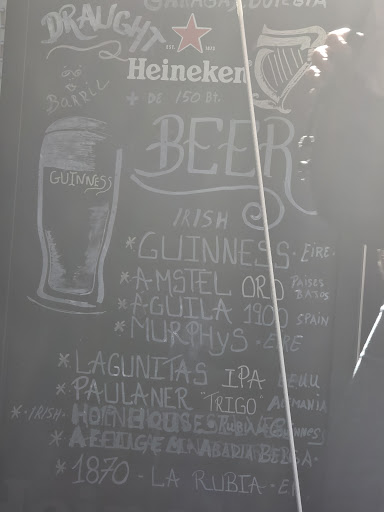 DRAUGHT
EST. 1873
Heineken
Barril
+ DE 150 Bt.
BEER
GUINNESS
IRISH
* GUINNESS. EIRE.
* AMSTEL ORO PAISES BAJOS
* AGUILA 1900 SPAIN
* MURPHYS. EIRE
* LAGUNITAS IPA EEUU
* PAULANER "TRIGO" ALEMANIA
* IRISH.
* AFFLIGEM. ABADIA BELGA.
* 1870 - LA RUBIA.